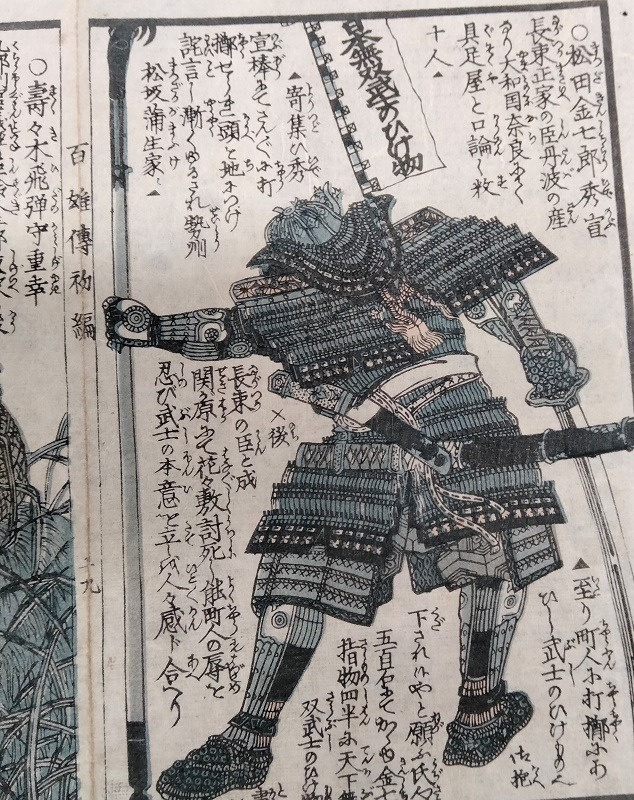 ○松田金七郎秀宣
長束正家の臣丹波の産
なり大和国奈良にて
具足屋と口論し数
十人▲
日本無双武士のひけ物
▲寄集ひ秀
宣棒にてさんざんに打
擲せしき頭を地につけ
詫言し漸くゆるされ勢州
松坂蒲生家に▲
▲至り町人に打擲にあ
ひし武士のひけもの
御抱
下されいやと願ふ氏
五百石にてかゝゆ金七
指物四半に天下無
双武士のひけ物
×後
長束の臣と成
関ヶ原にて花々敷討死し能町人の辱を
忍び武士の本意を立しは人々感じ合へり
百雄傳初編
三九
○壽々木飛弾守重幸